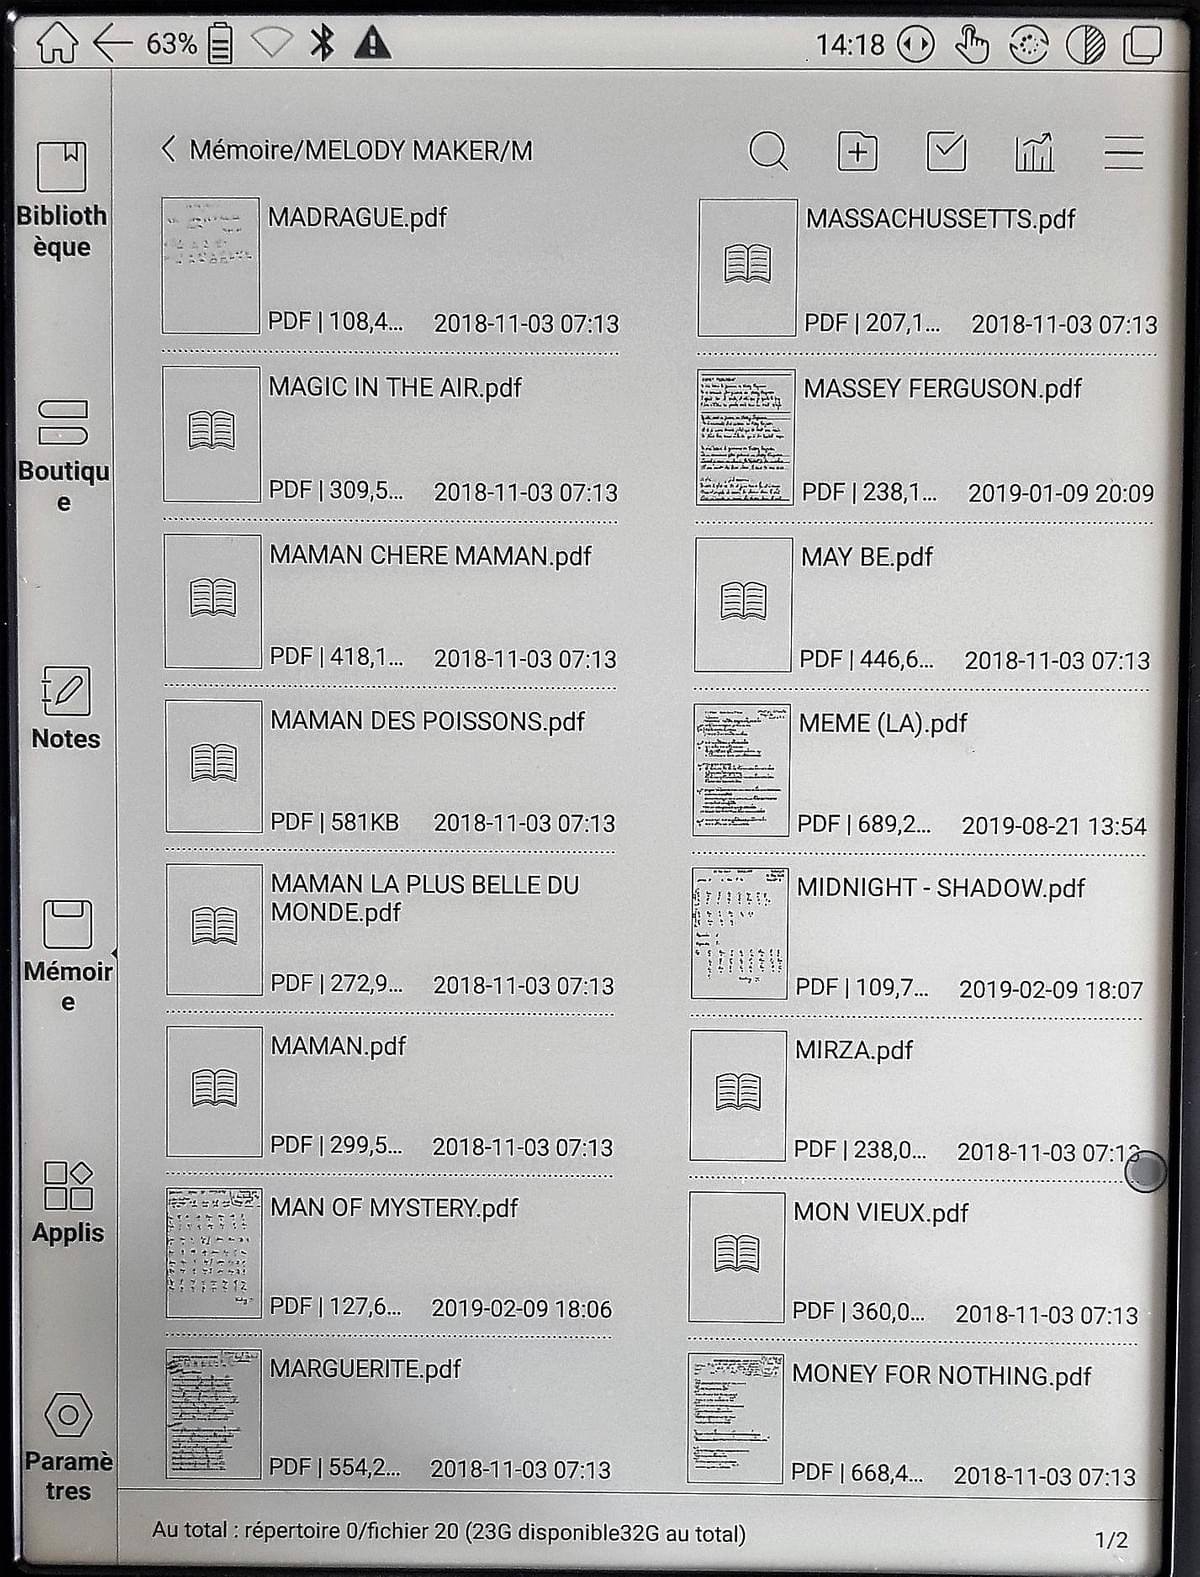 63%
14:18
Mémoire/MELODY MAKER/M
Biblioth
èque
Boutiqu
e
Notes
Mémoir
e
Applis
Paramè
tres
MADRAGUE.pdf
PDF | 108,4... 2018-11-03 07:13
MAGIC IN THE AIR.pdf
PDF | 309,5... 2018-11-03 07:13
MAMAN CHERE MAMAN.pdf
PDF | 418,1... 2018-11-03 07:13
MAMAN DES POISSONS.pdf
PDF | 581KB 2018-11-03 07:13
MAMAN LA PLUS BELLE DU
MONDE.pdf
PDF | 272,9... 2018-11-03 07:13
MAMAN.pdf
PDF | 299,5... 2018-11-03 07:13
MAN OF MYSTERY.pdf
PDF | 127,6... 2019-02-09 18:06
MARGUERITE.pdf
PDF | 554,2... 2018-11-03 07:13
MASSACHUSSETTS.pdf
PDF | 207,1... 2018-11-03 07:13
MASSEY FERGUSON.pdf
PDF | 238,1... 2019-01-09 20:09
MAY BE.pdf
PDF | 446,6... 2018-11-03 07:13
MEME (LA).pdf
PDF | 689,2... 2019-08-21 13:54
MIDNIGHT - SHADOW.pdf
PDF | 109,7... 2019-02-09 18:07
MIRZA.pdf
PDF | 238,0... 2018-11-03 07:13
MON VIEUX.pdf
PDF | 360,0... 2018-11-03 07:13
MONEY FOR NOTHING.pdf
PDF | 668,4... 2018-11-03 07:13
Au total : répertoire 0/fichier 20 (23G disponible32G au total)
1/2